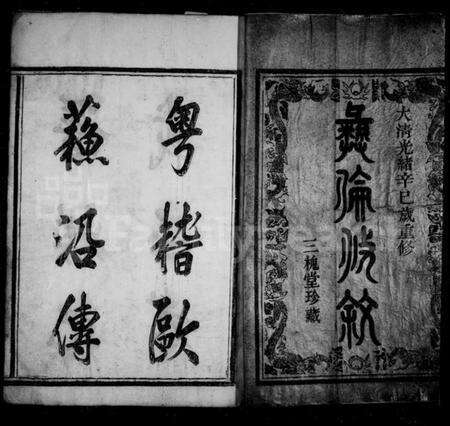 大清光緒辛巳歲重修
彝倫攸敘
三槐堂珍藏
粵稽歐
蘓沿傳